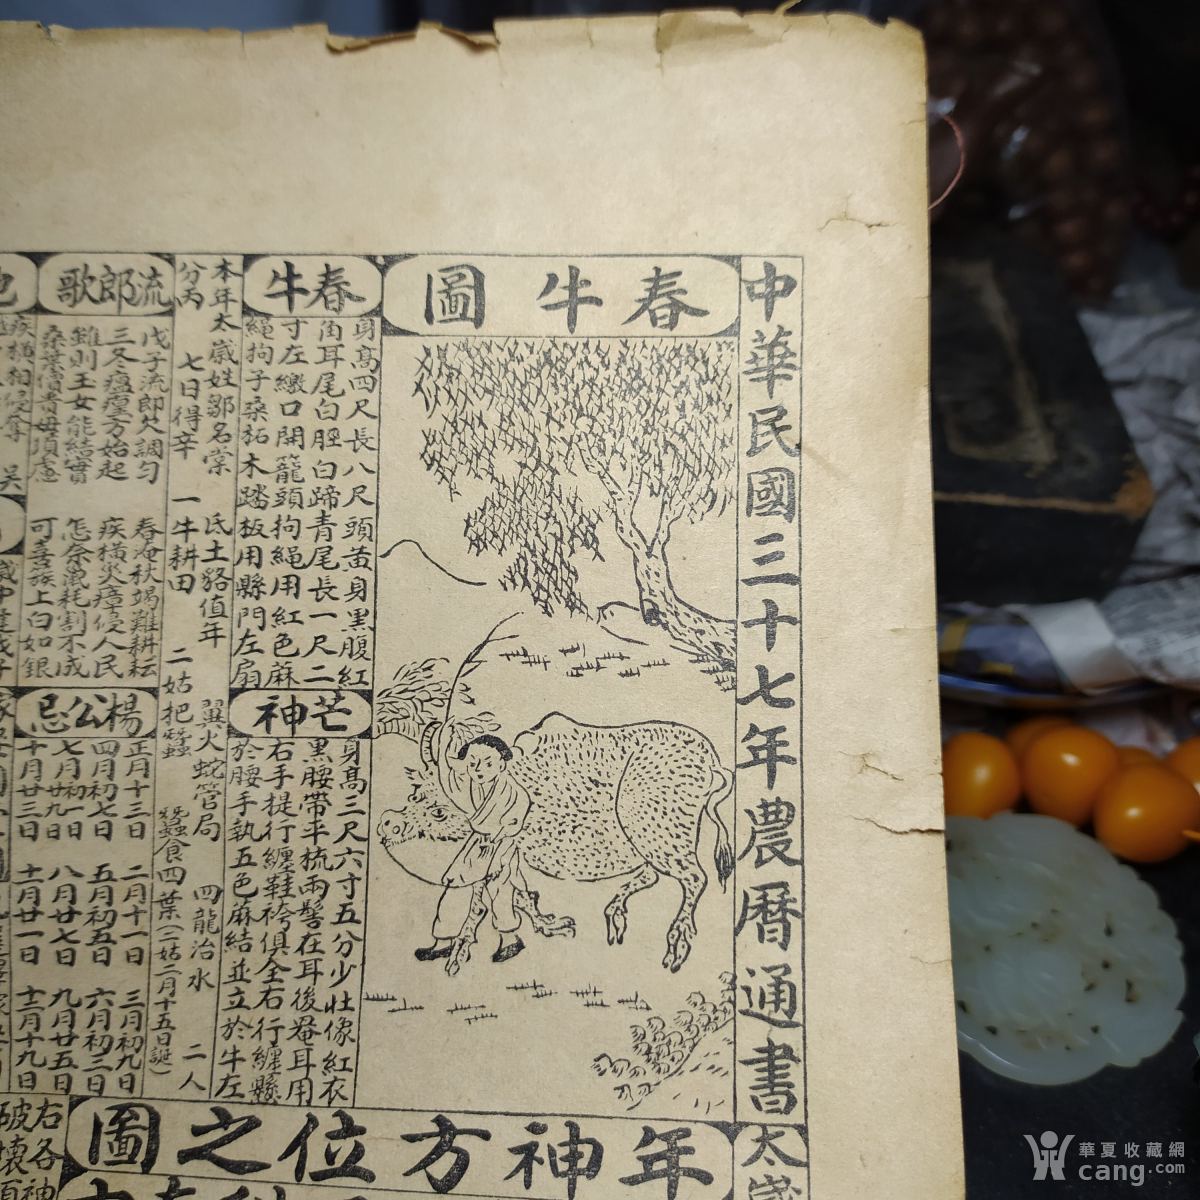 中華民國三十七年農曆通書
太歲
春牛圖
春牛
身高四尺長八尺頭黃身黑腹紅
角耳尾白脛白蹄青尾長一尺二
寸左繳口開籠頭拘繩用紅色蔴
繩拘子桑柘木踏板用縣門左扇
芒神
身高三尺六寸五分少壯像紅衣
黑腰帶平梳兩髻在耳後罨耳用
右手提行纏鞋袴俱全右行纏懸
於腰手執五色蔴結並立於牛左
本年太歲姓鄒名棠 氐土貉值年 翼火蛇管局 四龍治水 二人
分丙 七日得辛 一牛耕田 二姑把蠶 蠶食四葉(二姑二月十五日誕)
流郎歌
戊子流郎欠調勻 春淹秋竭難耕耘
三冬瘟瘟方始起 疾橫災瘴侵人民
雖則玉女能結實 怎奈氣耗割不成
桑葉價貴毋須慮 可喜簇上白如銀
楊公忌
正月十三日 二月十一日 三月初九日
四月初七日 五月初五日 六月初三日
七月初一日 廿九日 八月廿七日 九月廿五日
十月廿三日 十一月廿一日 十二月十九日
年神方位之圖
右各神
破壞